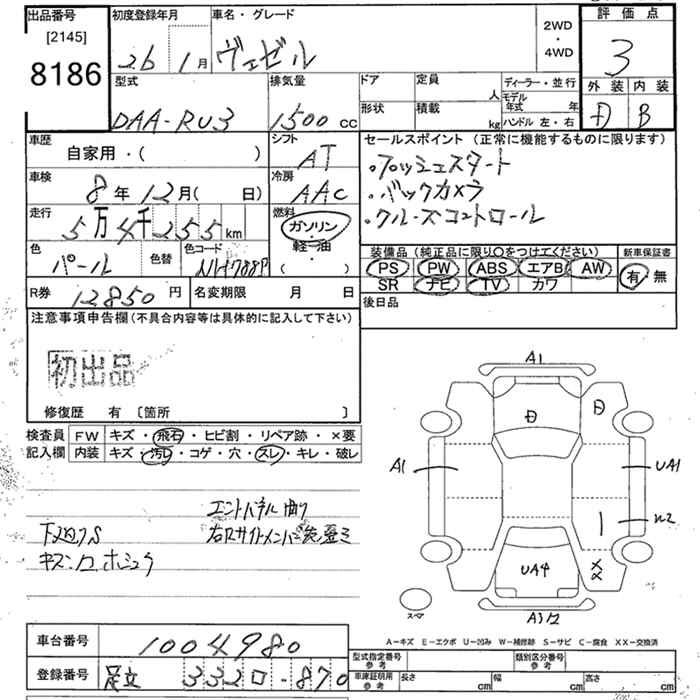 出品番号
[2145]
8186
初度登録年月
26 1月
車名・グレード
ヴェゼル
2WD
・
4WD
評価点
3
外装 内装
D B
型式
DAA-RU3
排気量
1500 CC
ドア
定員 人
形状
積載 kg
ディーラー・並行
モデル年式 年
ハンドル 左・右
車歴
自家用・( )
シフト
AT
車検
8年12月( 日)
冷房
AAC
走行
5万4千255km
燃料
ガソリン
・
軽油
( ・ )
色
パール
色替
色コード
NH788P
セールスポイント (正常に機能するものに限ります)
・プッシュスタート
・バックカメラ
・クルーズコントロール
装備品(純正品に限り○をつけてください)
PS PW ABS エアB AW
SR ナビ TV カワ
新車保証書
有 無
R券 12850円
名変期限 月 日
後日品
注意事項申告欄(不具合内容等は具体的に記入して下さい)
初出品
修復歴 有 [箇所 ]
検査員
記入欄
FW キズ・飛石・ヒビ割・リペア跡・×要
内装 キズ・汚レ・コゲ・穴・スレ・キレ・破レ
エンドパネル曲り
下廻りS
キズ
A1
D
D
A1
UA1
W2
XX
UA4
スペア
A3
A-キズ E-エクボ U-凹み W-補修跡 S-サビ C-腐食 XX-交換済
車台番号 1004980
登録番号 足立 332ロ-870
型式指定番号
参考
類別区分番号
参考
車庫証明用
参考
長さ cm
幅 cm
高さ cm